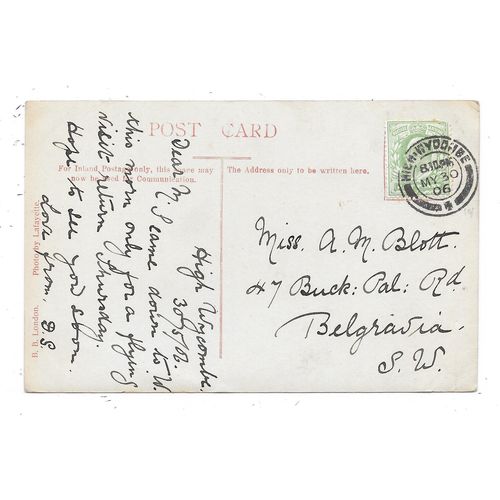 POST CARD
For Inland Postage only, this space may
now be used for Communication.
The Address only to be written here.
HIGH-WYCOMBE
MY 30
06
High Wycombe.
30/5/06.
Dear N. I came down to W.
this morn only for a flying
visit, return Thursday.
Hope to see you soon.
Love from. D.S
Miss. A. M. Blott.
47 Buck: Pal: Rd
Belgravia.
S. W.
B. B. London. Photo by Lafayette.